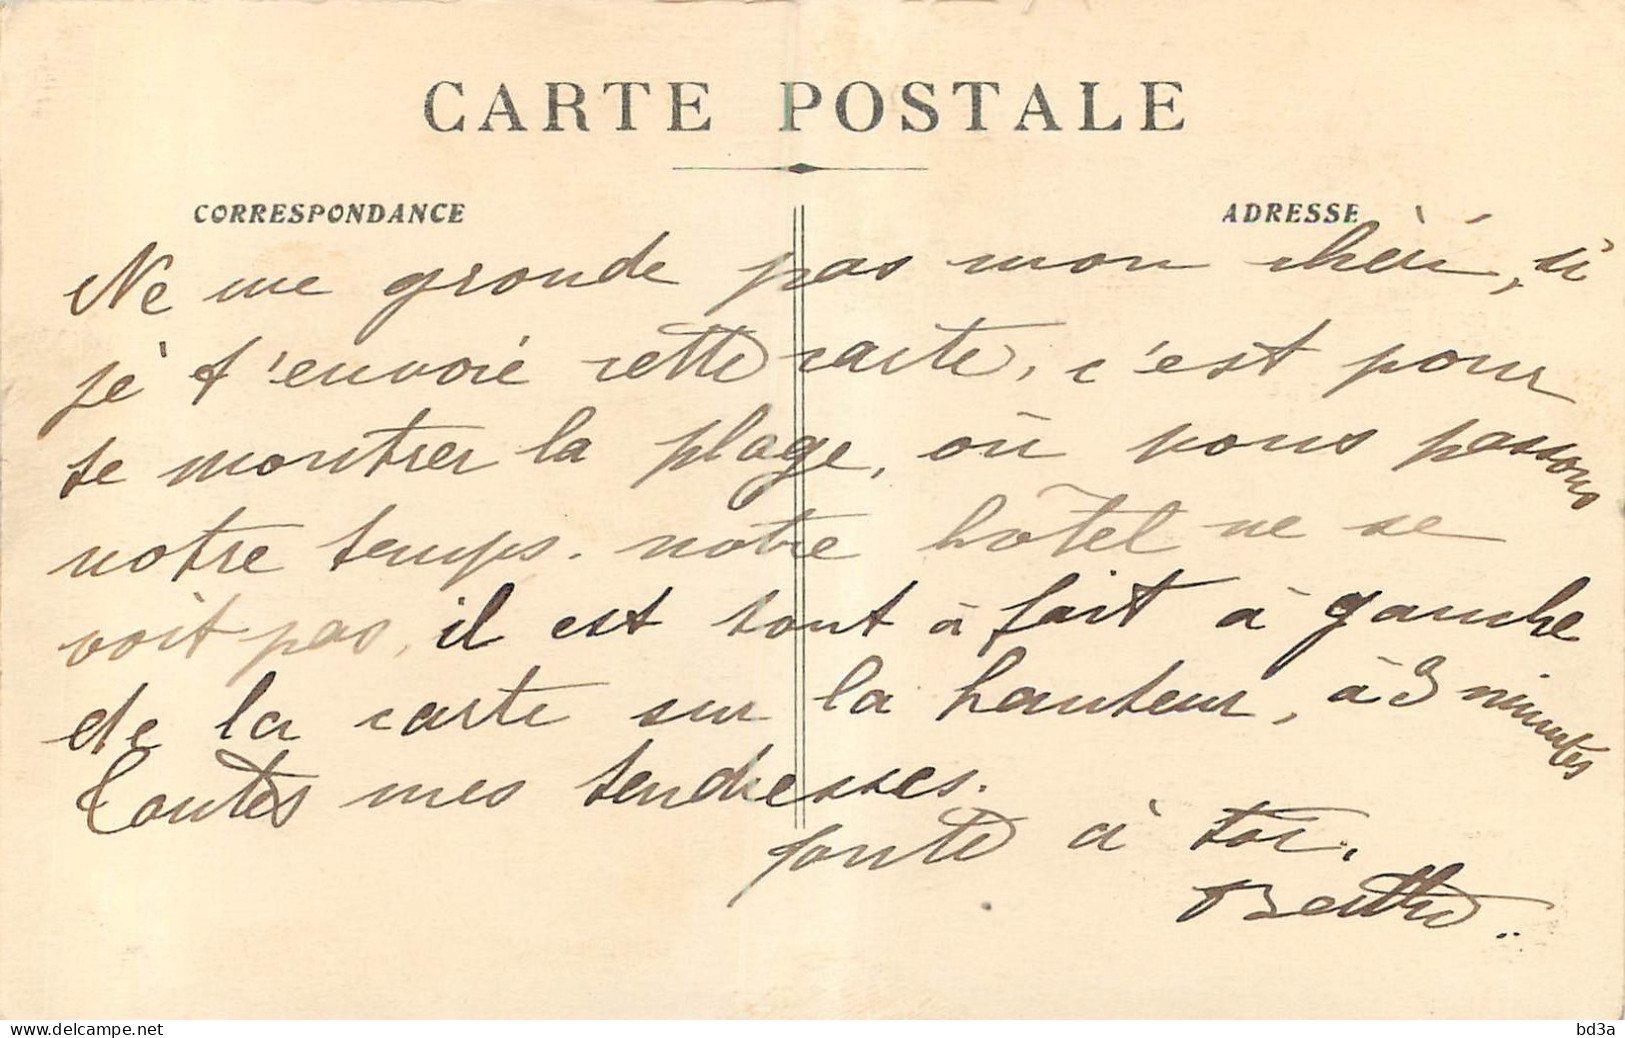 CARTE POSTALE
CORRESPONDANCE
ADRESSE
Ne me gronde pas mon chéri, si
je t'envoie cette carte, c'est pour
te montrer la plage, où nous passons
notre temps. notre hôtel ne se
voit pas, il est tout à fait à gauche
de la carte sur la hauteur, à 3 minutes
Toutes mes tendresses.
toute à toi.
Berthe..
www.delcampe.net
bd3a